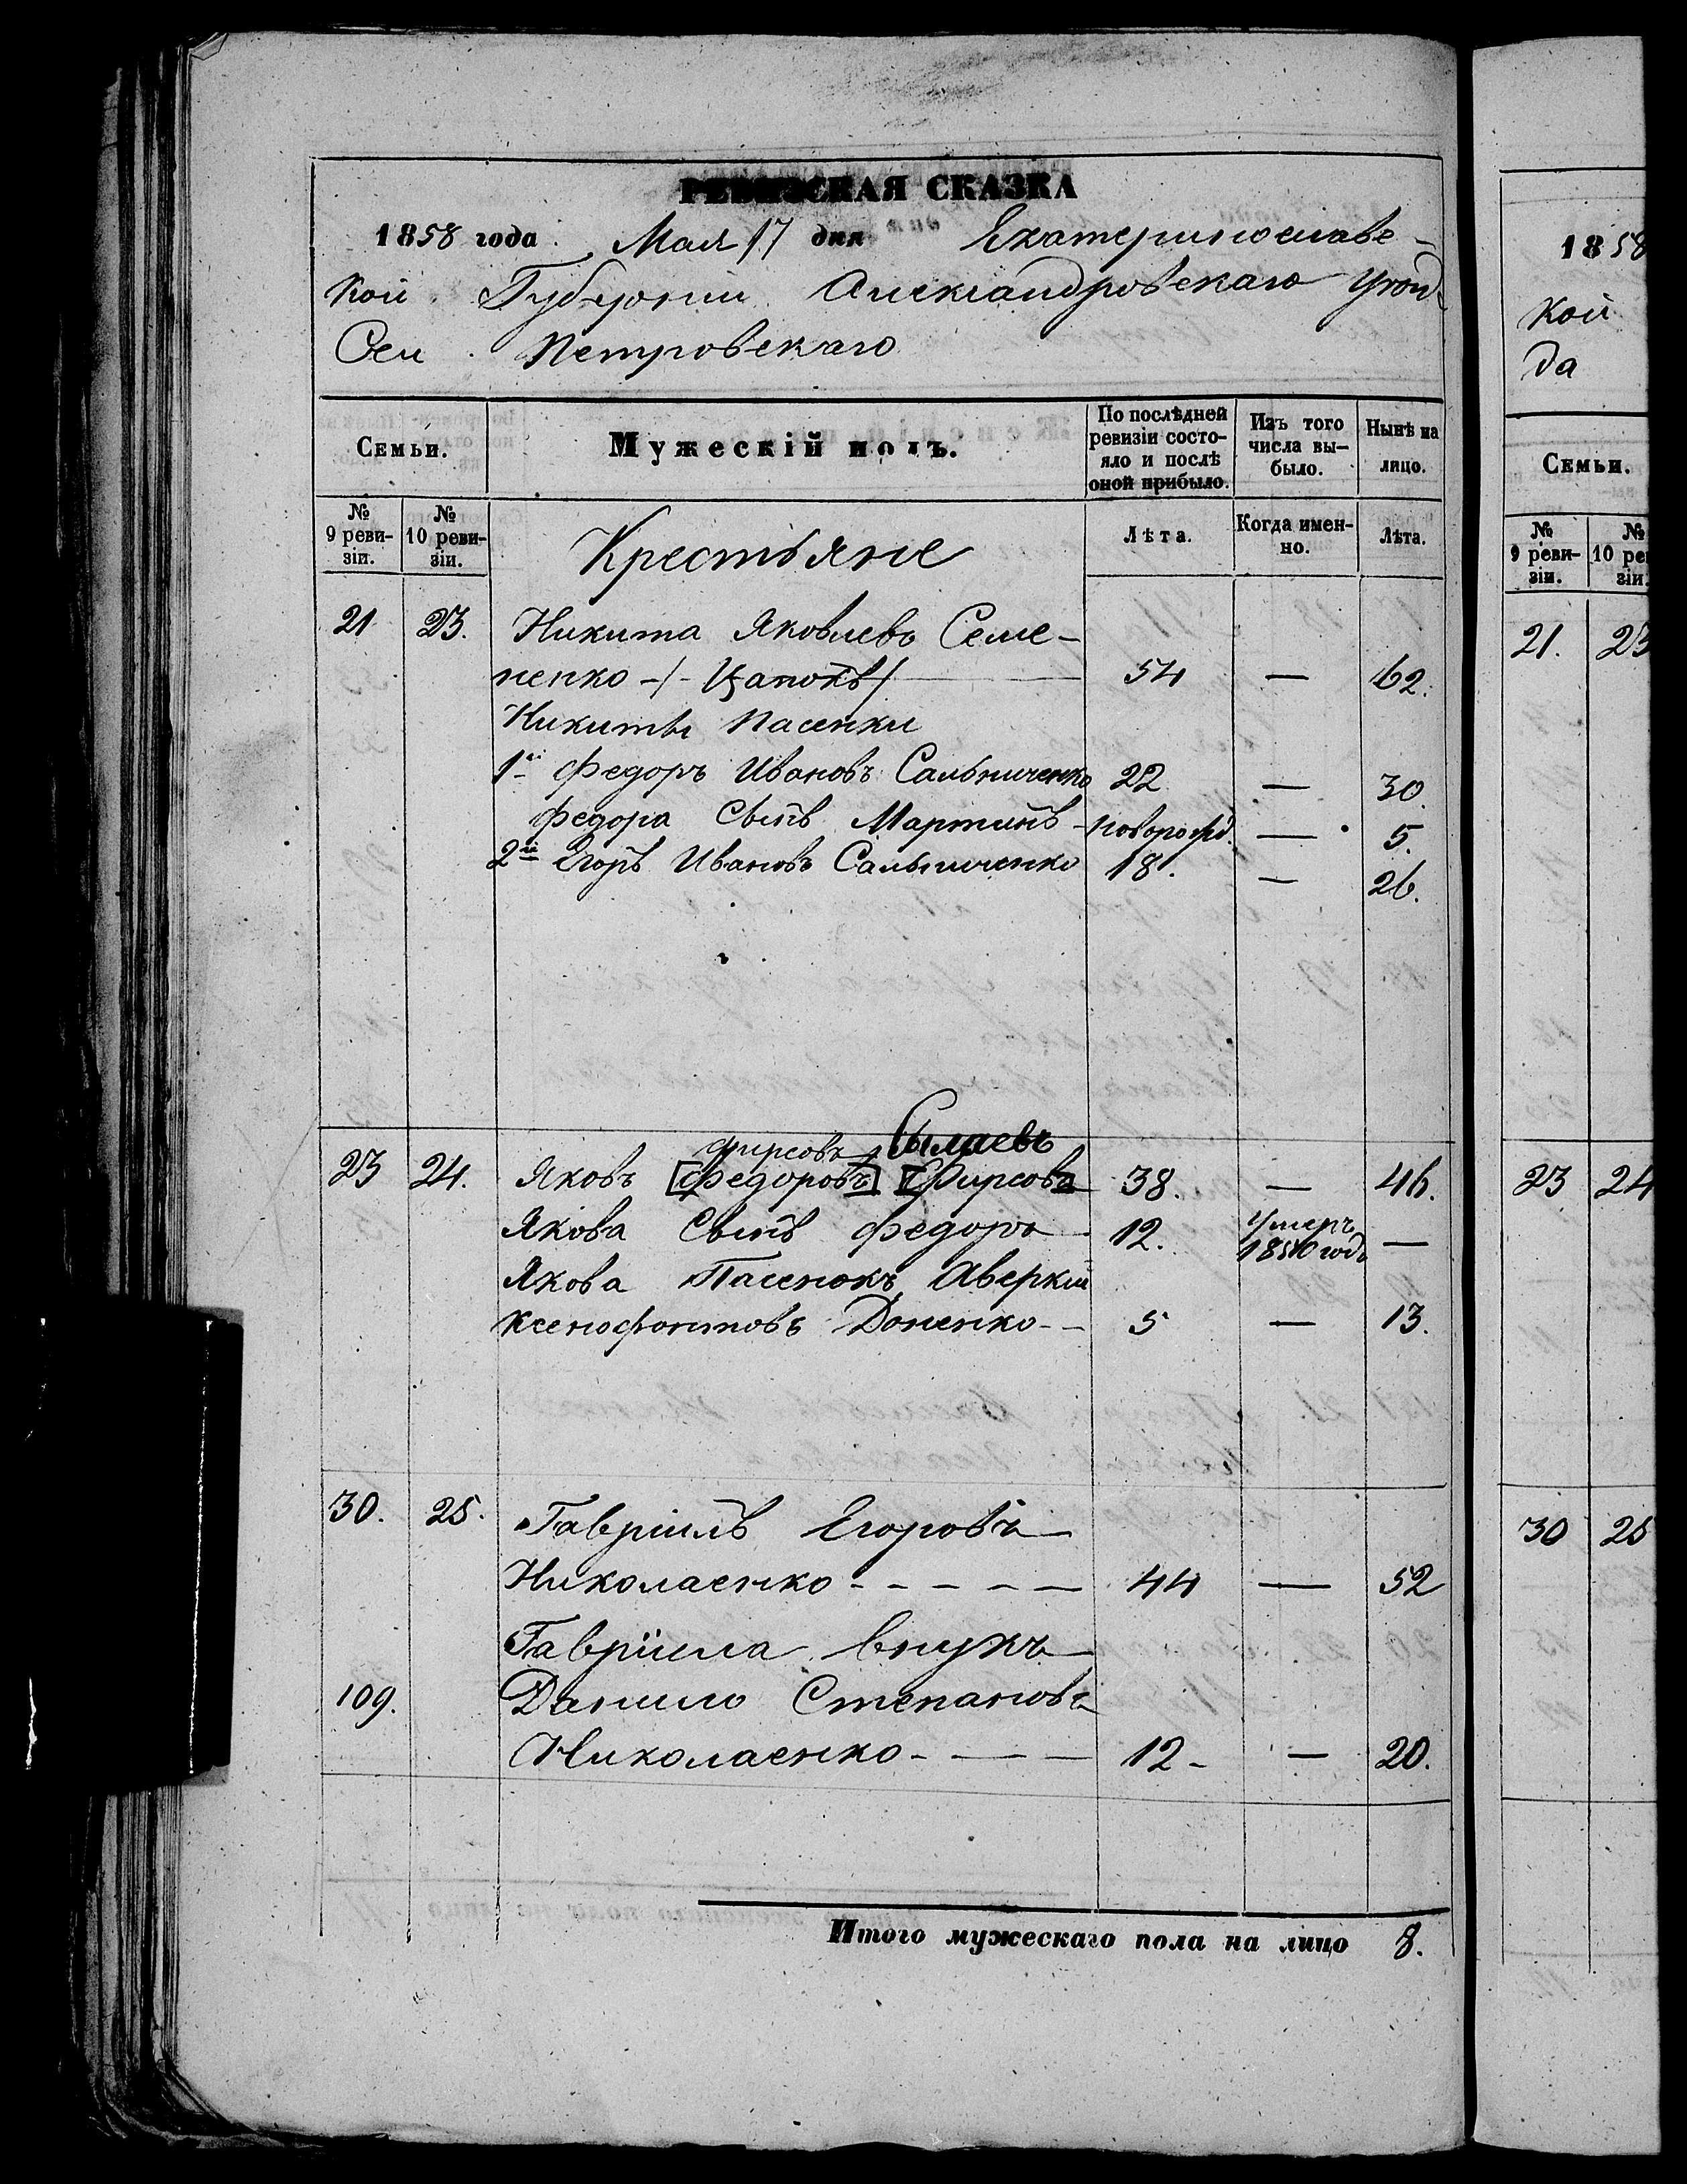 РЕВИЗСКАЯ СКАЗКА
1858 года Мая 17 дня Екатеринославс-
кой Губерніи Александровскаго Уѣзд
Сел Петровскаго
Семьи.
Мужескій полъ.
По послѣдней ревизіи состо-яло и послѣ оной прибыло.
Изъ того числа вы-было.
Нынѣ на лицо.
№ 9 реви-зіи.
№ 10 реви-зіи.
Крестьяне
Лѣта.
Когда имен-но.
Лѣта.
21 23. Никита Яковлевъ Семе-
ненко -/- Цапокъ/ 54 — 62.
Никиты Пасенки
1й Федоръ Ивановъ Сальниченко 22 — 30.
Федора Сынъ Мартинъ - новорожд. — 5.
2й Егоръ Ивановъ Сальниченко 18. — 26.
Фирсовъ Сылаевъ
23 24. Яковъ [Федоровъ] [Фирсовъ] 38. — 46.
Якова Сынъ Федоръ 12. Умеръ 1850 годъ —
Якова Пасенокъ Аверкій
Ксенофонтовъ Доненко - - 5 — 13.
30. 25. Гавріилъ Егоровъ
Николаенко - - - - - 44 — 52
Гавріила внукъ
109. Данило Степановъ
Николаенко - - - 12 - — 20.
Итого мужескаго пола на лицо 8.
1858
кой
да
Семьи.
№ 9 реви-зіи.
№ 10 ре зіи.
21. 23
23 24
30 25